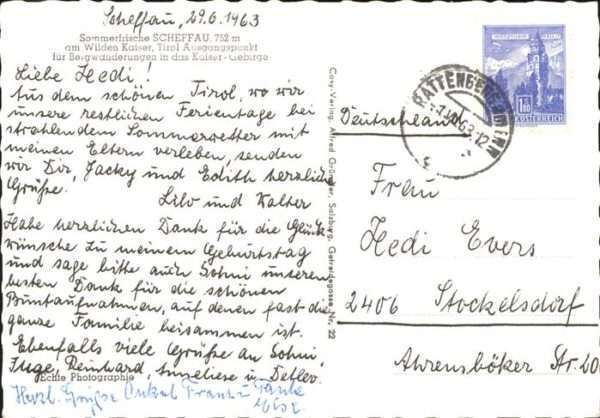 Scheffau, 29.6.1963
Sommerfrische SCHEFFAU, 752 m
am Wilden Kaiser, Tirol Ausgangspunkt
für Bergwanderungen in das Kaiser-Gebirge
Liebe Hedi!
Aus dem schönen Tirol, wo wir
unsere restlichen Ferientage bei
strahlendem Sommerwetter mit
meinen Eltern verleben, senden
wir Dir, Jacky und Edith herzliche
Grüße.
Lilo und Walter
Habe herzlichen Dank für die Glück
wünsche zu meinem Geburtstag
und sage bitte auch Sohni unseren
besten Dank für die schönen
Buntaufnahmen, auf denen fast die
ganze Familie beisammen ist.
Ebenfalls viele Grüße an Sohni,
Inge, Reinhard, Anneliese u Detlev.
Echte Photographie
Herzl. Grüße Onkel Franz u Tante
Cosy-Verlag, Alfred Gründler, Salzburg, Getreidegasse Nr. 22
REPUBLIK ÖSTERREICH
1.80
RATTENBERG
63-12
Deutschland
Frau
Hedi Evers
2406 Stockelsdorf
Ahrensböker Str. 20